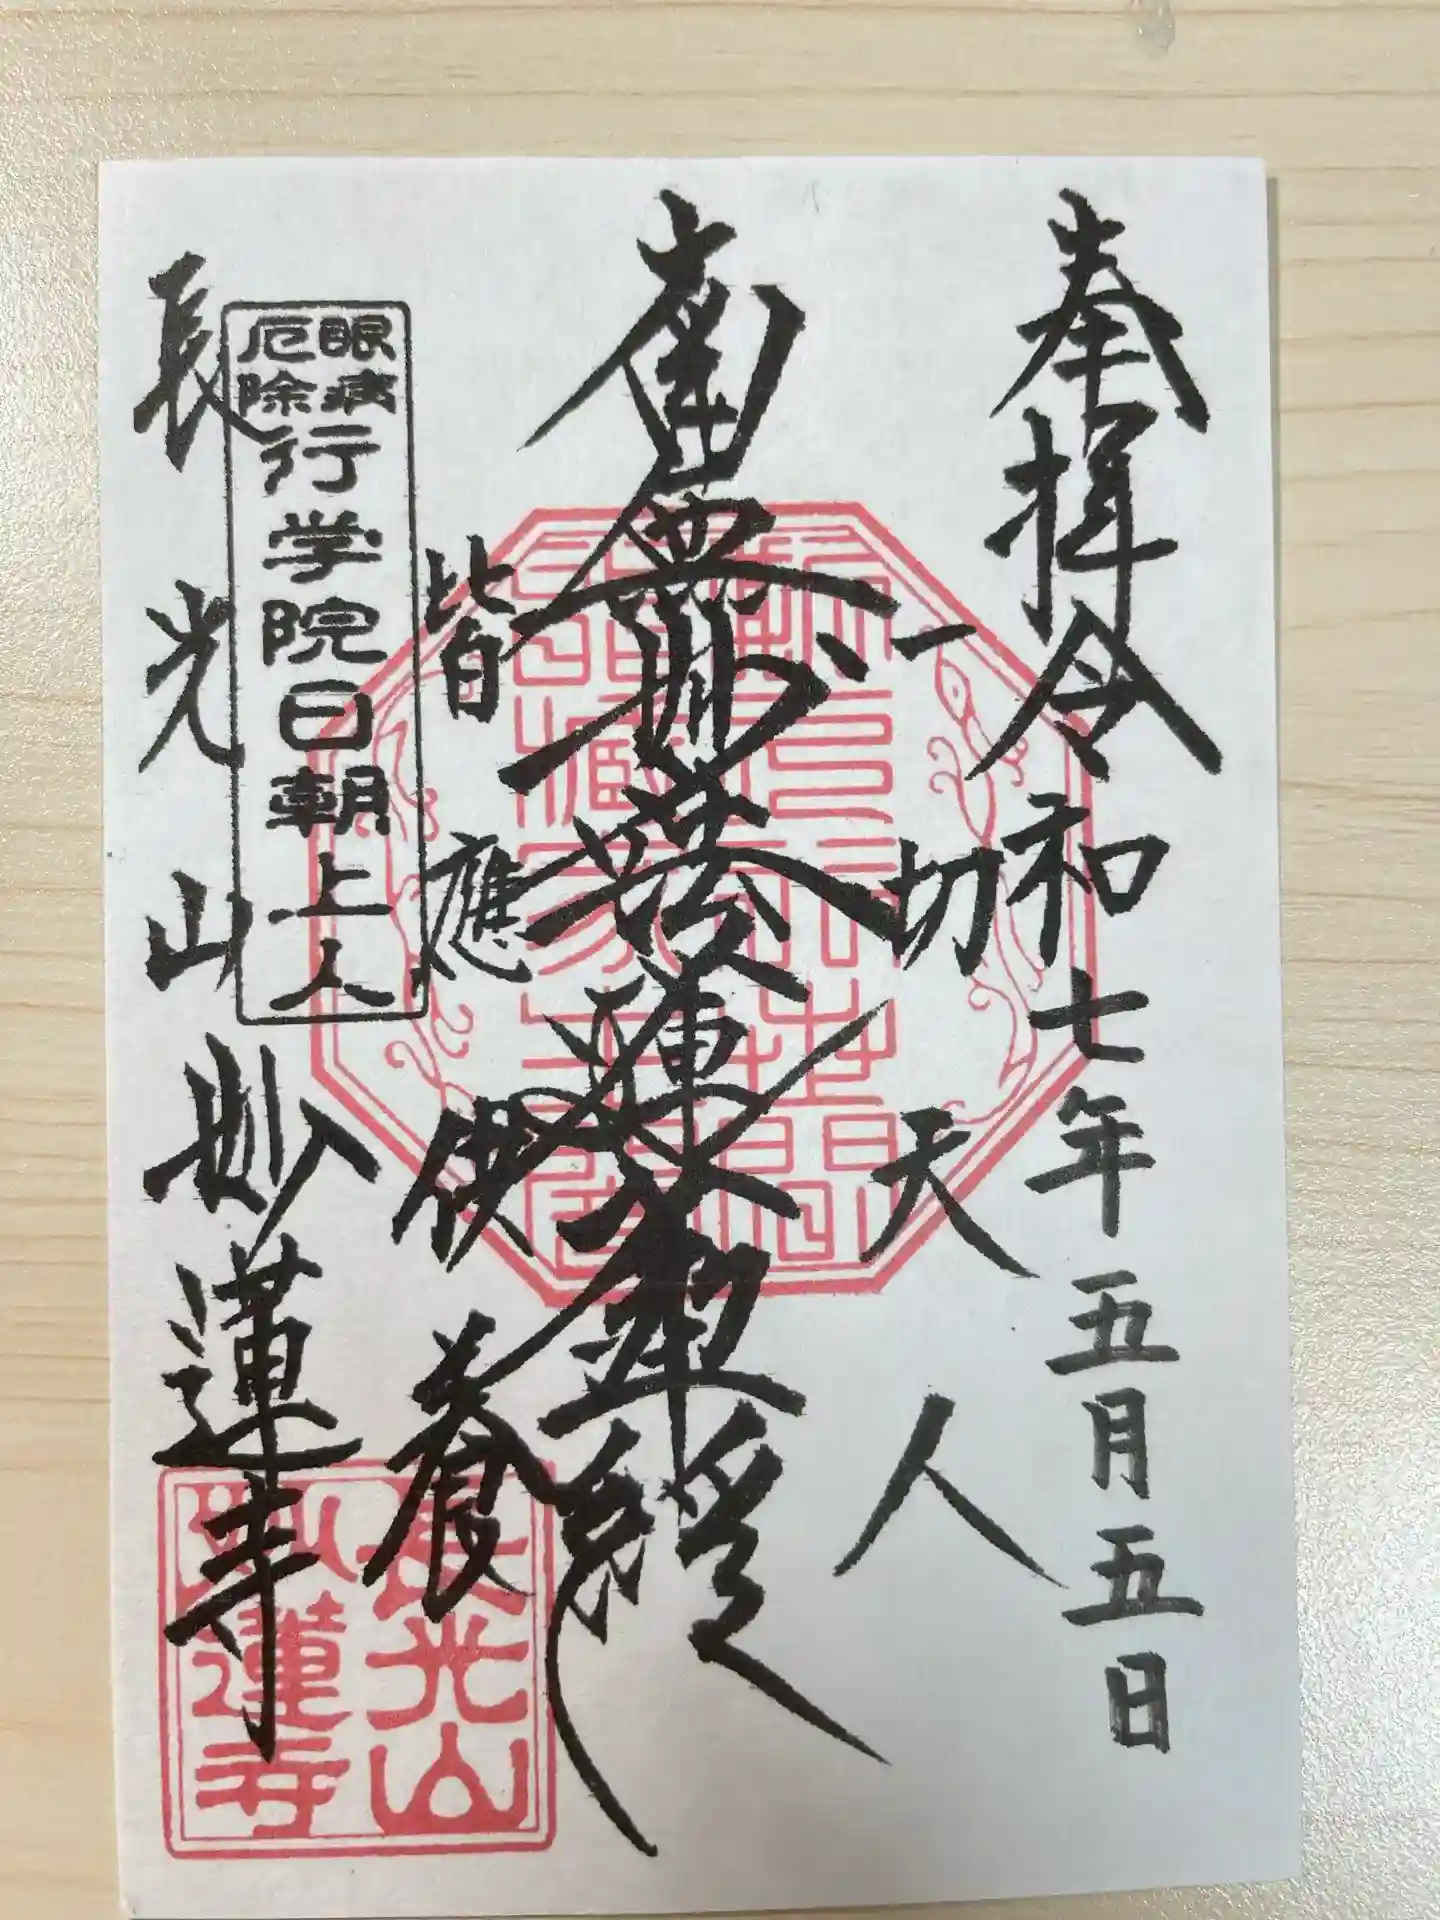 奉拝令和七年五月五日
一切天人
南無妙法蓮華経
皆應供養
眼病
厄除
行学院日朝上人
長光山妙蓮寺
長光山
妙蓮寺